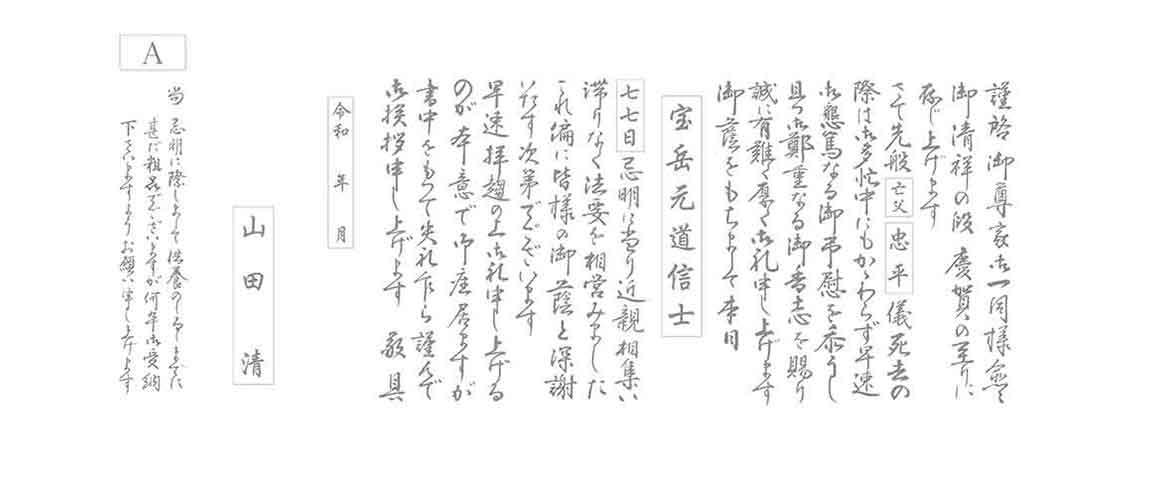 謹啓 御尊家御一同様愈々
御清祥の段 慶賀の至りに
存じ上げます
さて先般 亡父 忠平 儀死去の
際は御多忙中にもかゝわらず早速
御懇篤なる御弔慰を忝うし
且つ御鄭重なる御香志を賜り
誠に有難く厚く御礼申し上げます
御蔭をもちまして本日
宝岳元道信士
七七日忌明に当り近親相集い
滞りなく法要を相営みました
これ偏に皆様の御蔭と深謝
いたす次第でございます
早速拝趨の上御礼申し上げる
のが本意で御座居ますが
書中をもって失礼乍ら謹んで
御挨拶申し上げます 敬具
令和 年 月
山田 清
A
尚 忌明に際しまして供養のしるしまでに
甚だ粗品でございますが何卒御受納
下さいますようお願い申し上げます